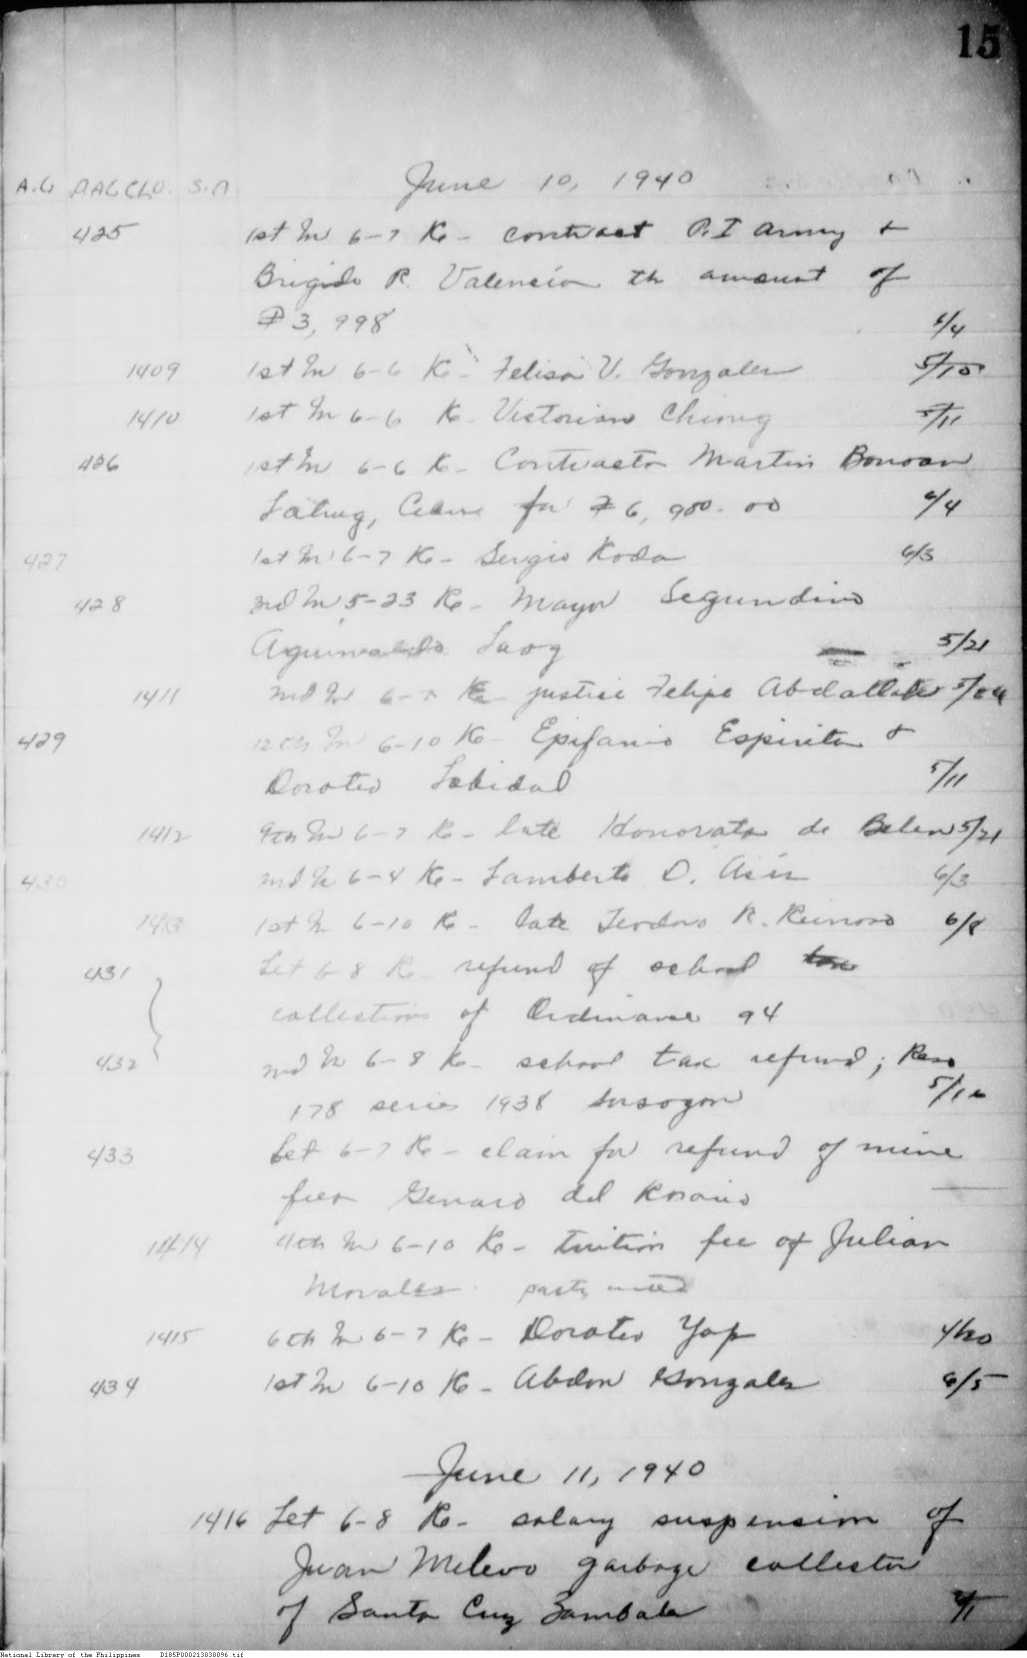 15
June 10, 1940
425 1st In 6-7 Re - contract P.I Army &
Brigido R. Valencia th amount of
₱ 3, 998 6/4
1409 1st In 6-6 Re - Felisa V. Gonzales 5/10
1410 1st In 6-6 Re - Victorian Chiong 5/11
426 1st In 6-6 Re - Contractor Martin Bonoan
for ₱ 6, 900.00 6/4
427 1st In 6-7 Re - Sergio Koda 6/3
428 2nd In 5-23 Re - Mayor Segundino
Aguinaldo Laog 5/21
1411 2nd In 6- Re - justice Felipe
429 12th In 6-10 Re - Epifanio Espiritu &
Doroteo Labidal 5/11
1412 9th In 6-7 Re - late Honorata de Belen 5/21
430 2nd In 6-4 Re - Lamberto D. Asis 6/3
1413 1st In 6-10 Re - late Teodoro R. Reinoso 6/8
431 Let 6-8 Re - refund of school
collections of Ordinance 94
432 2nd In 6-8 Re - school tax refund; Reso
178 series 1938 Sorsogon 5/16
433 Let 6-7 Re - claim for refund of mine
fees Genaro del Rosario
1414 4th In 6-10 Re - tuition fee of Julian
Morales
1415 6th In 6-7 Re - Doroteo Yap 4/20
434 1st In 6-10 Re - Abdon Gonzales 6/5
June 11, 1940
1416 Let 6-8 Re - salary suspension of
Juan Melevo garbage collector
of Santa Cruz Zambales
National Library of the Philippines D185P000213838096.tif